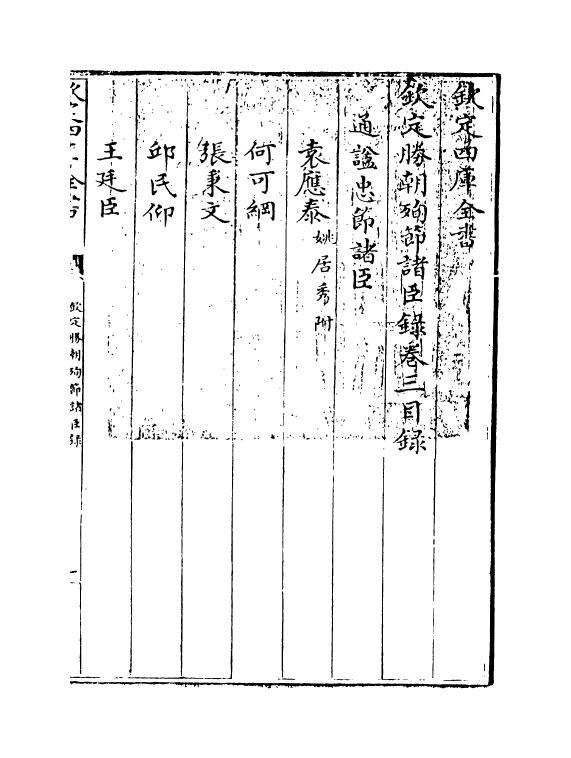 欽定四庫全書
欽定勝朝殉節諸臣錄卷三目錄
通諡忠節諸臣
袁應泰 姚居秀附
何可綱
張秉文
邱民仰
王廷臣
欽定四庫全書
欽定勝朝殉節諸臣錄
一